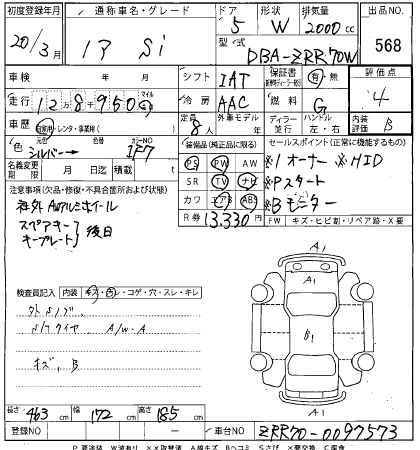 初度登録年月 通称車名・グレード ドア 形状 排気量 出品NO.
20/3月 ノア Si 5 W 2000cc 568
型式 DBA-ZRR70W
車検 年 月 シフト IAT 保証書 有 無 評価点
走行 12万8千950 マイル km 冷房 AAC 燃料 G 4
車歴 自家用・レンタ・事業用( ) 定員 8人 外車モデル ディーラー 並行 ハンドル 左・右 内装評価 B
色 元色 シルバー→ カラーNO 1F7 装備品(純正品に限る) セールスポイント(正常に機能するもの)
名義変更期限 月 日迄 積載 t PS PW AW ※1オーナー ※HID
注意事項(欠品・修復・不具合箇所および状態) SR TV ナビ ※Pスタート
社外AWアルミホイール カワ エアB ABS ※Bモニター
スペアキー キープレート 後日 R券 13,330円 FW キズ・ヒビ割・リペア跡・X要
検査員記入 内装 キズ・汚レ・コゲ・穴・スレ・キレ
A/W-A
キズ, B
A1
A1
B1
A1
長さ 463cm 幅 172cm 高さ 185cm
登録NO - 車台NO ZRR70-0097573
P要塗装 W波有り XX取替済 A線キズ Bヘコミ S錆 X要交換 C腐食